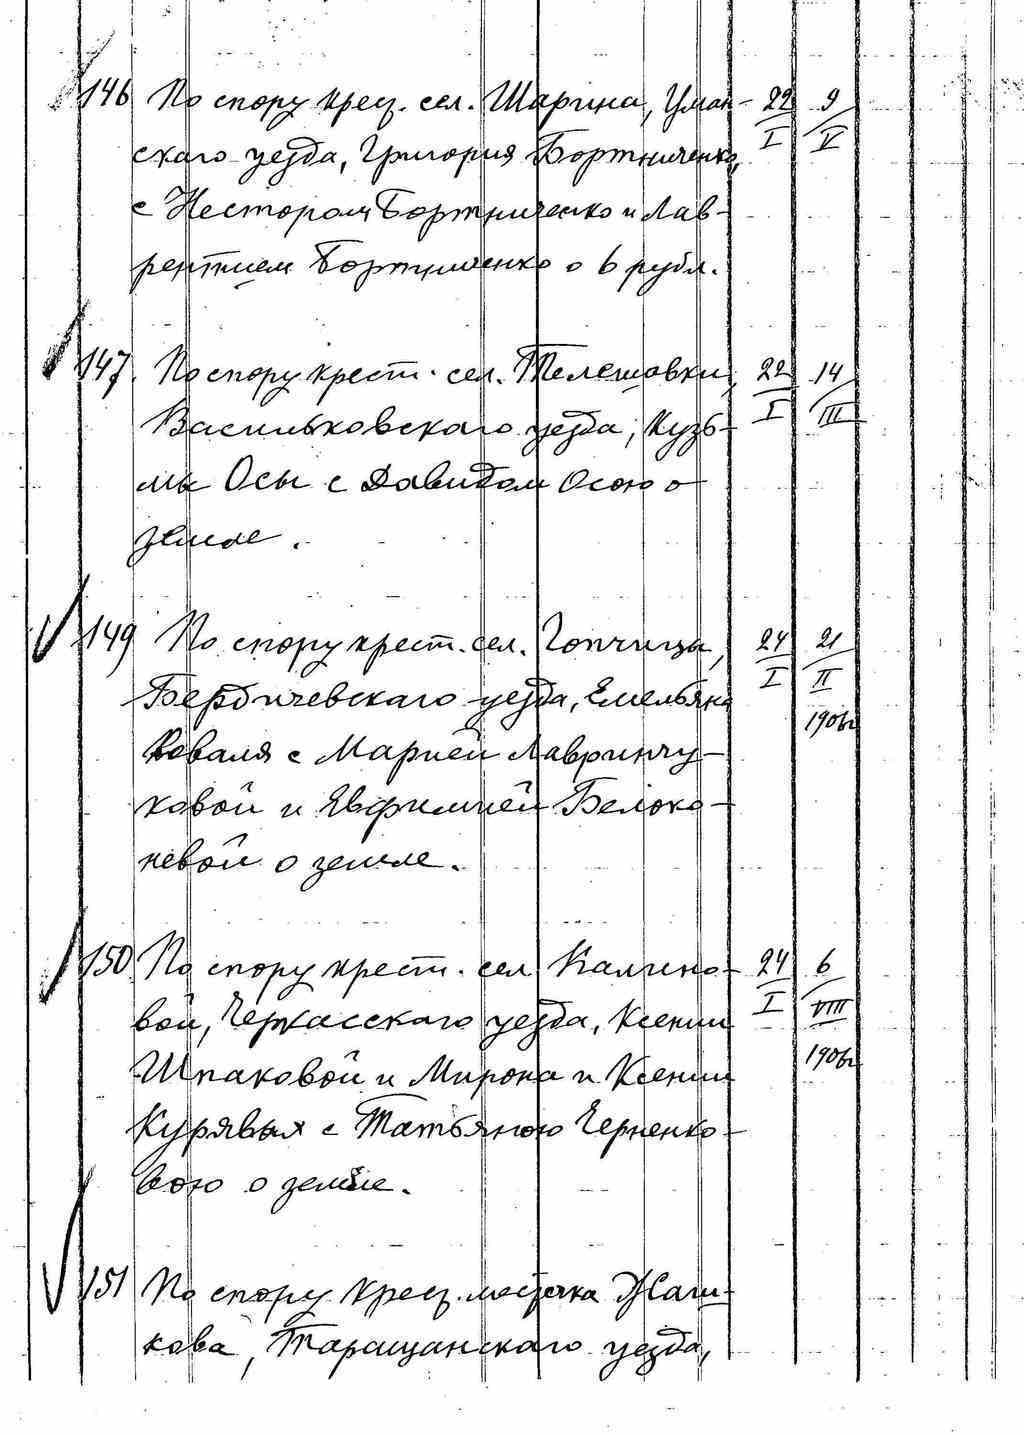 146 По спору крест. сел. Шарина, Уман- 22/I 9/V
скаго уезда, Григория Бортниченко,
с Нестором Бортниченко и Лав-
рентием Бортниченко о 6 рубл.
147. По спору крест. сел. Телешовки, 22/I 14/III
Васильковскаго уезда, Кузь-
мы Осы с Давидом Осою о
земле.
149 По спору крест. сел. Гопчицы, 24/I 21/II
Бердичевскаго уезда, Емельяна 1906г
Коваля с Марией Лавринчу-
ковой и Евфимией Белоко-
невой о земле.
150 По спору крест. сел. Калино- 24/I 6/VIII
вой, Черкасскаго уезда, Ксении 1906г
Шпаковой и Мирона и Ксении
Курявых с Татьяною Черненко-
вою о земле.
151 По спору крест. местечка Жаш-
кова, Таращанскаго уезда,